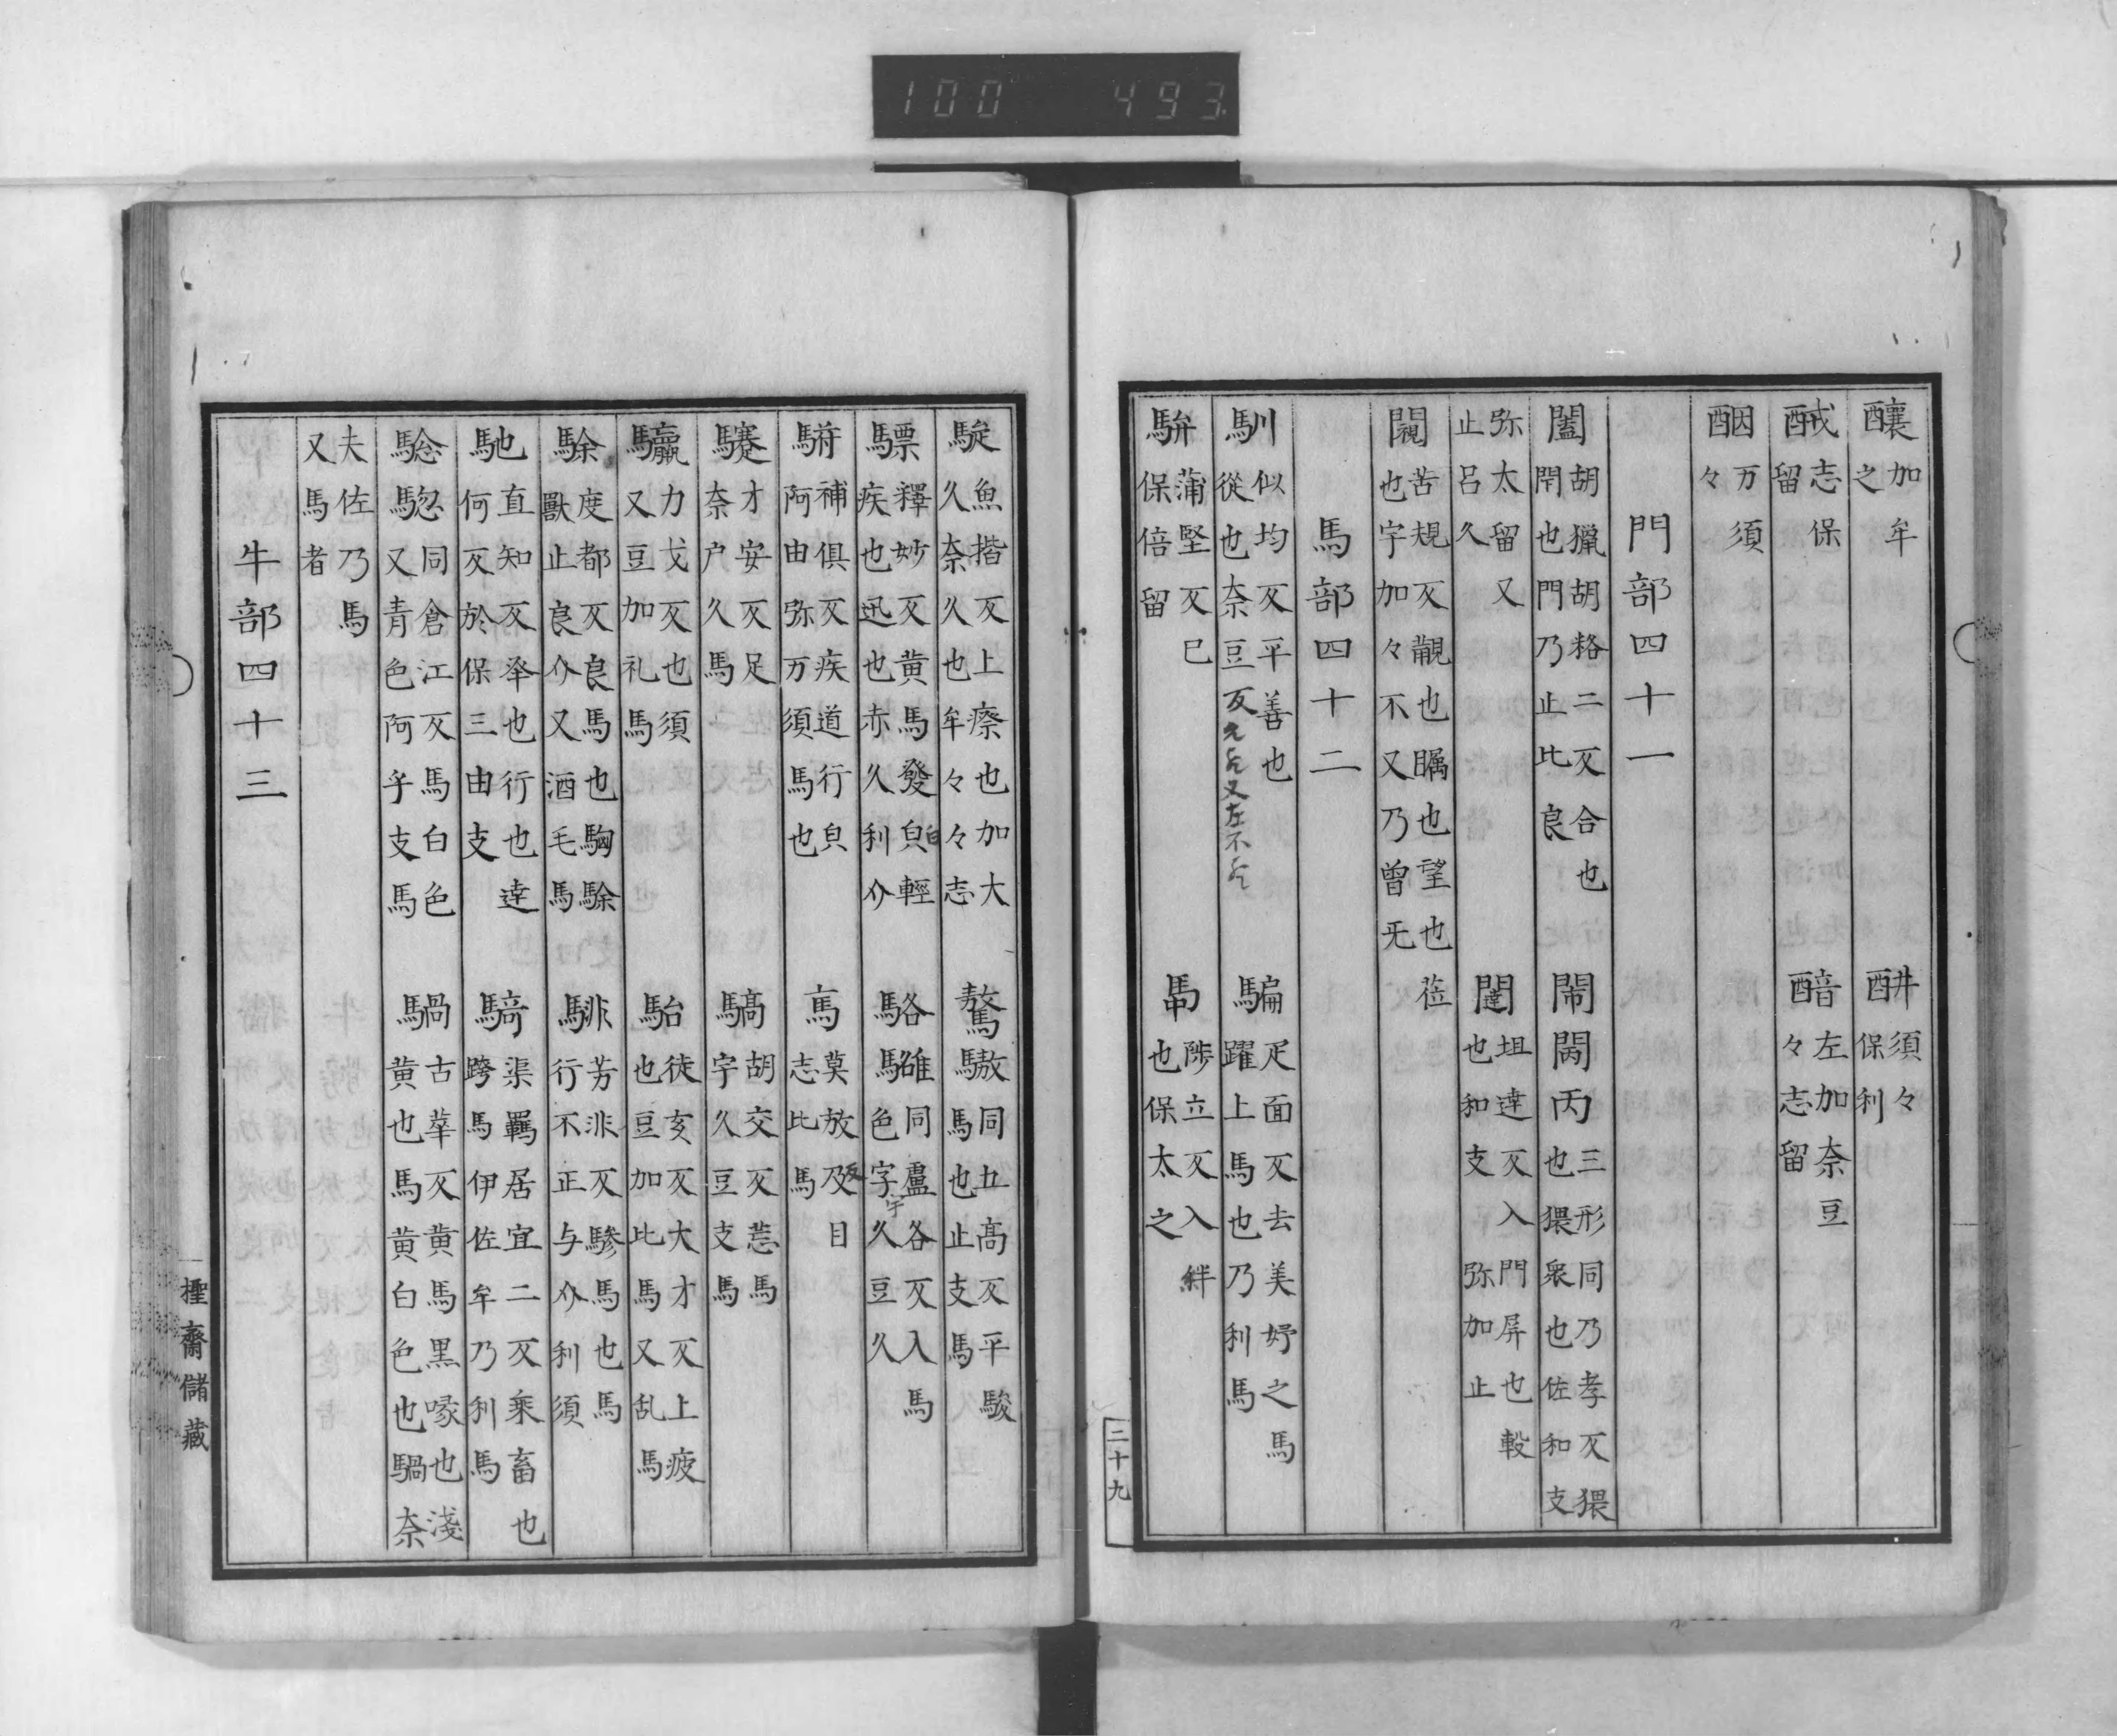 釀 加牟 之 須々 保利
志保 留 左加奈豆 々志留
万須 々
門部四十一
闔 胡獵胡格二反合也 閇也門乃止比良 閙 丙 三形同乃孝反猥 也猥衆也佐和支
弥太留又 止呂久 闥 坦達反入門屏也 也和支弥加止
闚 苦規反覰也瞩也望也莅 也宇加々不又乃曾无
馬部四十二
馴 似均反平善也 從也奈豆 騙 疋面反去美妤之馬 躍上馬也乃利馬
騈 蒲堅反巳 保倍留 馽 陟立反入絆 也保太之
二十九
魚揩反上瘵也加大 久奈久也牟々々志 驁 驐 同五高反平駿 馬也止支馬
驃 釋妙反黄馬發白皃輕 疾也迅也赤久利介 駱 同盧各反入馬 色字久豆久
補俱反疾道行皃 阿由弥万須馬也 莫放及目 志比馬
才安反足 奈户久馬 胡交反惹馬 宇久豆支馬
力戈反也須 又豆加礼馬 駘 徒亥反大才反上疲 也豆加比馬又乱馬
駼 度都反良馬也騊駼 獸止良介又酒毛馬 騑 芳非反驂馬也馬 行不正与介利須
馳 直知反举也行也達 何反於保三由支 騎 渠羈居宜二反乘畜也 跨馬伊佐牟乃利馬
同倉江反馬白色 又青色阿乎支馬 騧 古華反黄馬黒喙也淺 黄也馬黄白色也騧奈
夫佐乃馬 又馬者
牛部四十三
齋儲藏
100 493